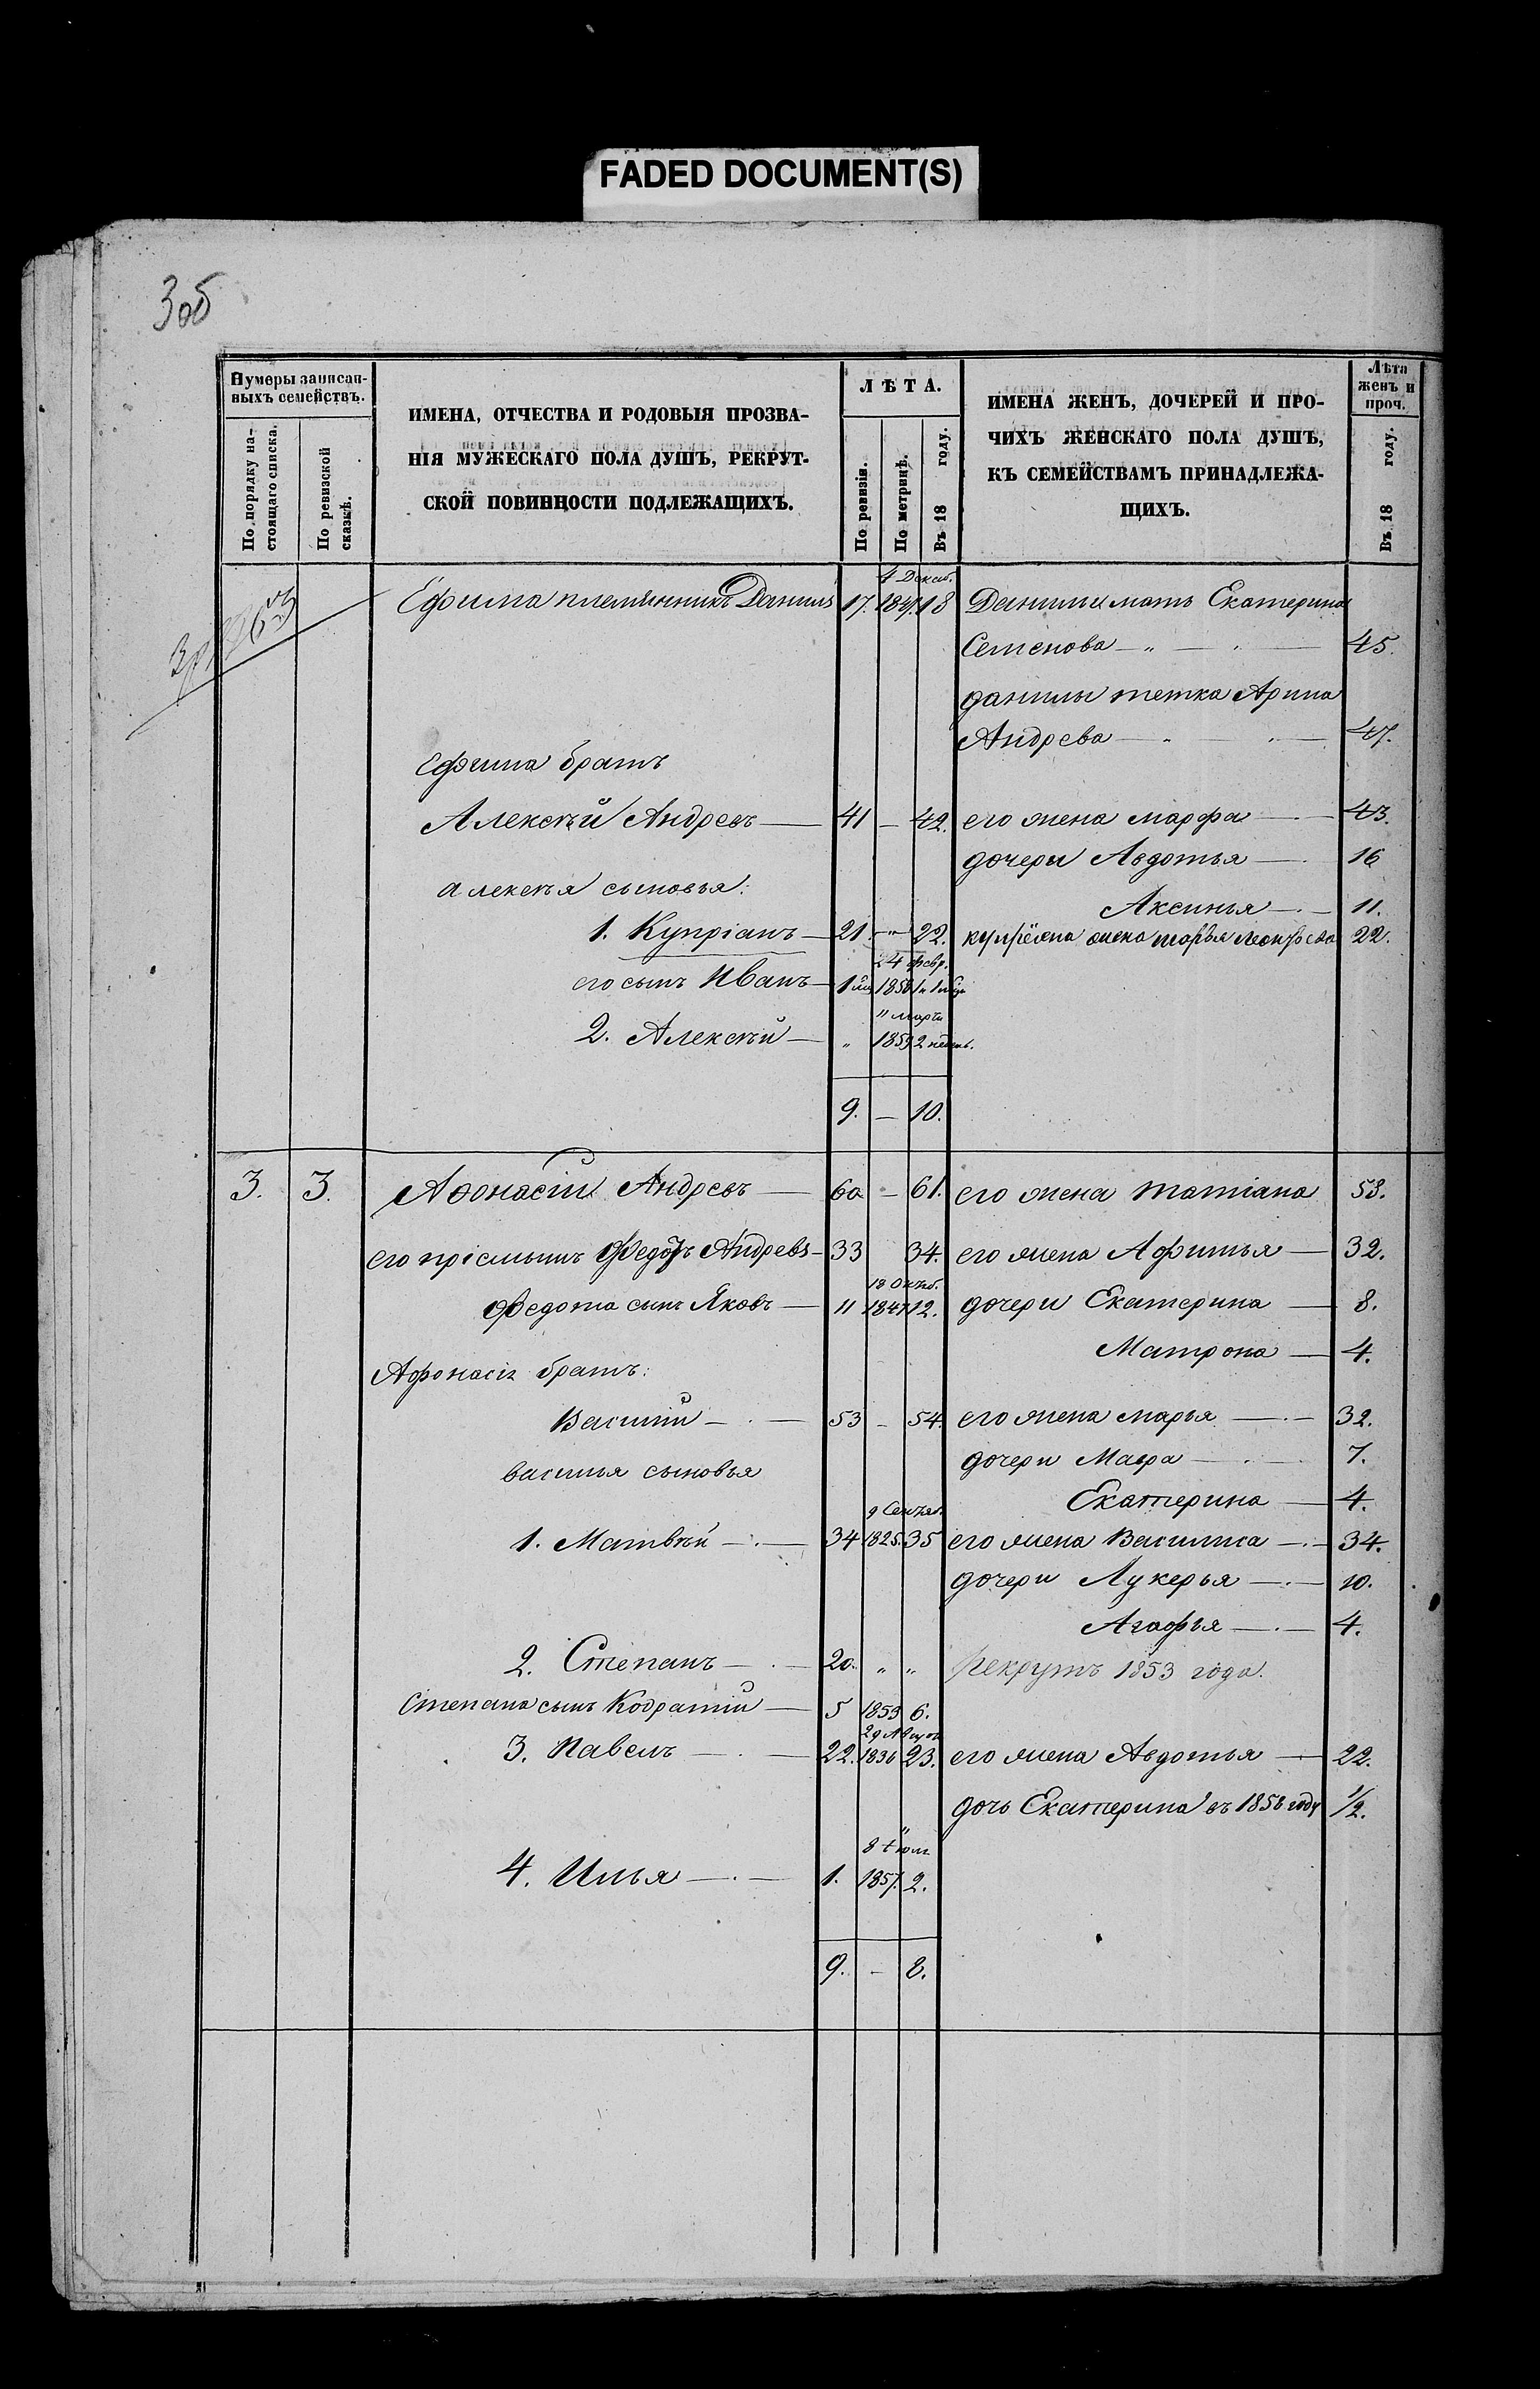 FADED DOCUMENT(S)
3об
Нумеры записан-
ныхъ семействъ.
По порядку на-
стоящаго списка.
По ревизской
сказкѣ.
ИМЕНА, ОТЧЕСТВА И РОДОВЫЯ ПРОЗВА-
НІЯ МУЖЕСКАГО ПОЛА ДУШЪ, РЕКРУТ-
СКОЙ ПОВИННОСТИ ПОДЛЕЖАЩИХЪ.
ЛѢТА.
По ревизіи.
По метрикѣ.
Въ 18 году.
ИМЕНА ЖЕНЪ, ДОЧЕРЕЙ И ПРО-
ЧИХЪ ЖЕНСКАГО ПОЛА ДУШЪ,
КЪ СЕМЕЙСТВАМЪ ПРИНАДЛЕЖА-
ЩИХЪ.
Лѣта
женъ и
проч.
Въ 18 году.
4 Декаб.
Ефима племянникъ Данилъ 17. 1841 18 Данилы мать Екатерина
Семенова — " — " — 45.
данилы тетка Арина
Андрева — 47.
Ефима братъ
Алексѣй Андревъ — 41 — 42. его жена марфа — 43.
дочери Авдотья — 16
алексѣя сыновья:
Аксинья — 11.
1. Купріанъ — 21. — " — 22. купріяна жена марья 22.
24 февр.
его сынъ Иванъ — 1 1858
марта
2. Алексѣй — " 1859 2
9. — 10.
3. 3. Афонасій Андревъ — 60 — 61. его жена татіана 58.
его пріемышъ Федотъ Андревъ — 33 34. его жена Афимья — 32.
18 Октб.
Федота сынъ Яковъ — 11 1847 12. дочери Екатерина — 8.
Матрона — 4.
Афонасія братъ:
Василій — 53 — 54. его жена марья — 32.
дочери Мавра — 7.
василья сыновья
Екатерина — 4.
9 Сентяб.
1. Матвѣй — 34 1825. 35 его жена Василиса — 34.
дочери Лукерья — 10.
Агафья — 4.
2. Степанъ — 20. " " рекрутъ 1853 года.
Степана сынъ Кодратій — 5 1853 6.
29 Август
3. Павелъ — 22. 1836 23. его жена Авдотья — 22.
дочь Екатерина въ 1858 году 1/2.
8 іюля
4. Илья — 1. 1857. 2.
9. — 8.